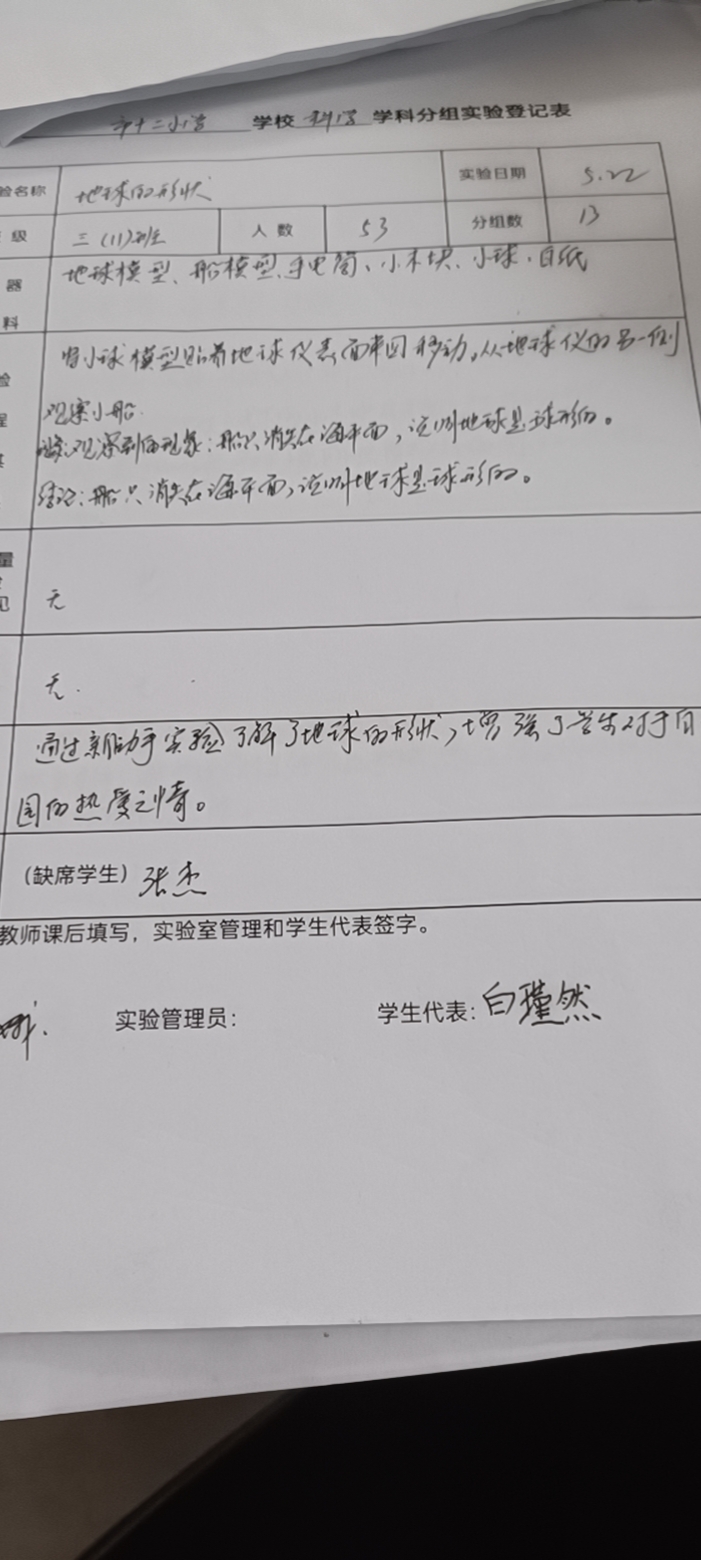 市十二小学 学校 科学 学科分组实验登记表
验名称 地球的形状 实验日期 5.22
级 三(11)班 人数 53 分组数 13
器 地球模型、船模型、手电筒、小木块、小球、白纸
料
将小球模型贴着地球仪表面 移动,从地球仪的另一侧
验
观察小船.
程
观察到的现象:船只消失在海平面,说明地球是球形的。
结论:船只消失在海平面,说明地球是球形的。
量
见 无
无.
通过亲自动手实验了解了地球的形状,增强了学生对于自
国的热爱之情。
(缺席学生) 张杰
教师课后填写,实验室管理和学生代表签字。
实验管理员: 学生代表: 白瑾然